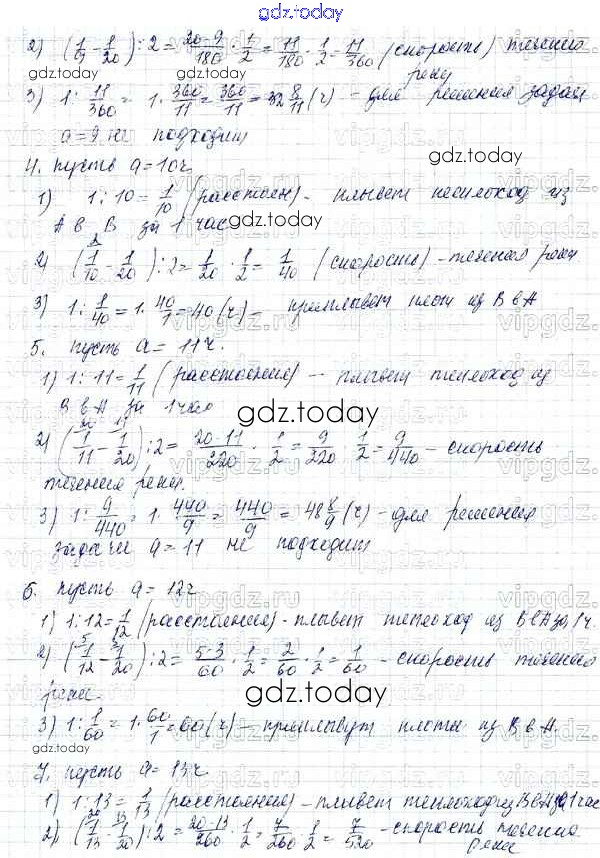 gdz.today
2) (1/9 - 1/20) : 2 = 20-9/180 · 1/2 = 11/180 · 1/2 = 11/360 (скорость) течения
gdz.today реки gdz.today
3) 1 : 11/360 = 1 · 360/11 = 360/11 = 32 8/11 (ч) - для решения задачи
a = 9 не подходит
gdz.today
4. пусть a = 10ч.
1) 1 : 10 = 1/10 (расстоян) - плывет теплоход из
A в B за 1 час
gdz.today
2) (1/10 - 1/20) : 2 = 1/20 · 1/2 = 1/40 (скорость) - течения реки
3) 1 : 1/40 = 1 · 40/1 = 40 (ч) - приплывет плот из B в A
5. пусть a = 11ч.
1) 1 : 11 = 1/11 (расстояния) - плывет теплоход из
B в A за 1 час
gdz.today
2) (1/11 - 1/20) : 2 = 20-11/220 · 1/2 = 9/220 · 1/2 = 9/440 - скорость
течения реки.
3) 1 : 9/440 = 1 · 440/9 = 440/9 = 48 8/9 (ч) - для решения
задачи a = 11 не подходит
6. пусть a = 12ч
1) 1 : 12 = 1/12 (расстояния) - плывет теплоход из B в A за 1ч.
2) (1/12 - 1/20) : 2 = 5-3/60 · 1/2 = 2/60 · 1/2 = 1/60 - скорость течения
реки.
gdz.today
3) 1 : 1/60 = 1 · 60/1 = 60 (ч) - приплывут плоты из B в A.
gdz.today
7. пусть a = 13ч.
gdz.today
1) 1 : 13 = 1/13 (расстояния) - плывет теплоход из B в A за 1 час
2) (1/13 - 1/20) : 2 = 20-13/260 · 1/2 = 7/260 · 1/2 = 7/520 - скорость течения
реки